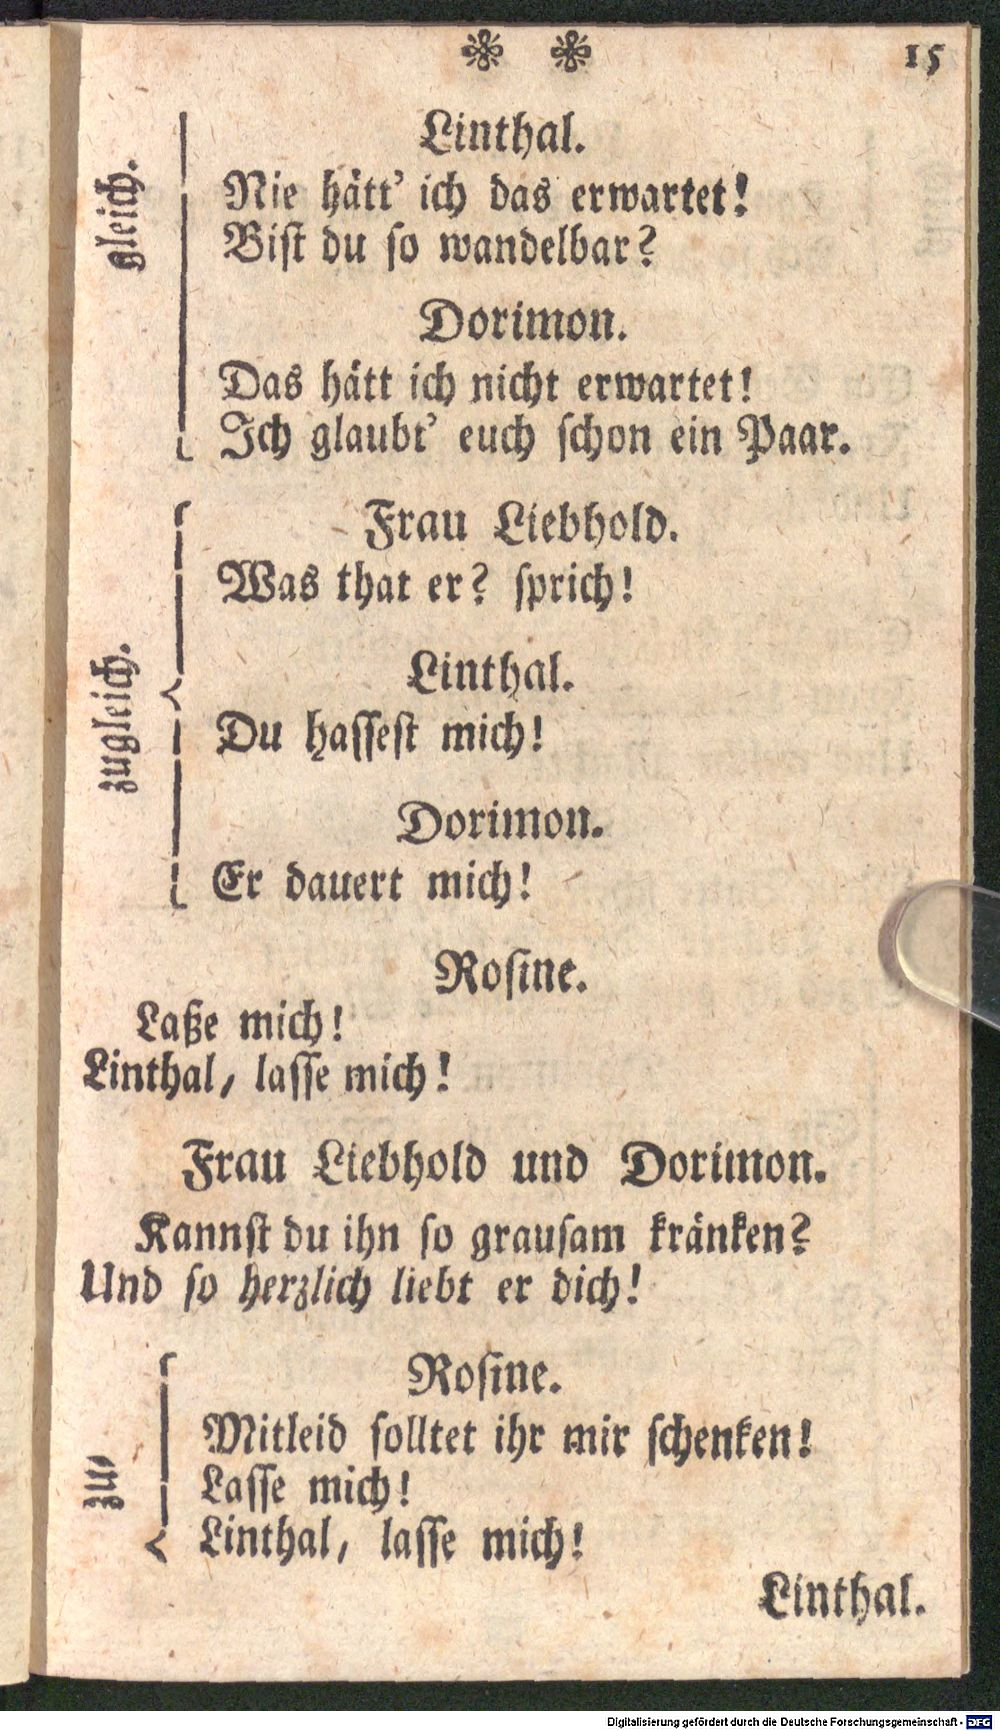 15
gleich.
Linthal.
Nie hätt' ich das erwartet!
Bist du so wandelbar?
Dorimon.
Das hätt ich nicht erwartet!
Ich glaubt' euch schon ein Paar.
zugleich.
Frau Liebhold.
Was that er? sprich!
Linthal.
Du hassest mich!
Dorimon.
Er dauert mich!
Rosine.
Laße mich!
Linthal, lasse mich!
Frau Liebhold und Dorimon.
Kannst du ihn so grausam kränken?
Und so herzlich liebt er dich!
zu-
Rosine.
Mitleid solltet ihr mir schenken!
Lasse mich!
Linthal, lasse mich!
Linthal.
Digitalisierung gefördert durch die Deutsche Forschungsgemeinschaft - DFG